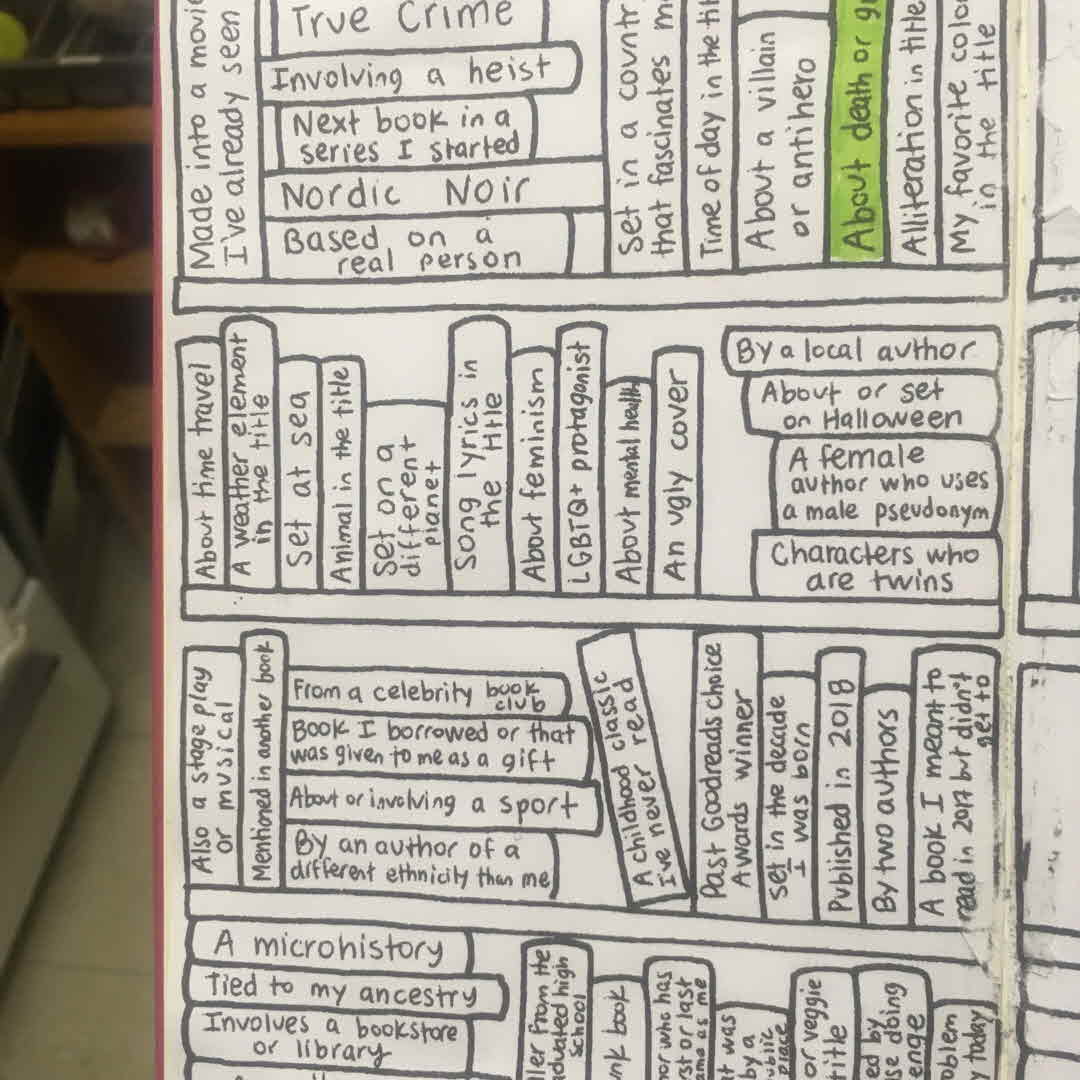 Made into a movie
I've already seen
True Crime
Involving a heist
Next book in a
series I started
Nordic Noir
Based on a
real person
Set in a countr
that fascinates m
Time of day in the tit
About a villain
or antihero
About death or g
Alliteration in title
My favorite color
in the title
About time travel
A weather element
in the title
Set at sea
Animal in the title
Set on a
different
planet
Song lyrics in
the title
About feminism
LGBTQ+ protagonist
About mental health
An ugly cover
By a local author
About or set
on Halloween
A female
author who uses
a male pseudonym
Characters who
are twins
Also a stage play
or musical
Mentioned in another book
From a celebrity book
club
Book I borrowed or that
was given to me as a gift
About or involving a sport
By an author of a
different ethnicity than me
A childhood classic
I've never read
Past Goodreads choice
Awards winner
Set in the decade
I was born
Published in 2018
By two authors
A book I meant to
read in 2017 but didn't
get to
A microhistory
Tied to my ancestry
Involves a bookstore
or library
ller from the
aduated high
school
nk book
or who has
rst or last
ame as me
t was
by a
ublic
place
or veggie
title
ed by
se doing
enge
oblem
y today